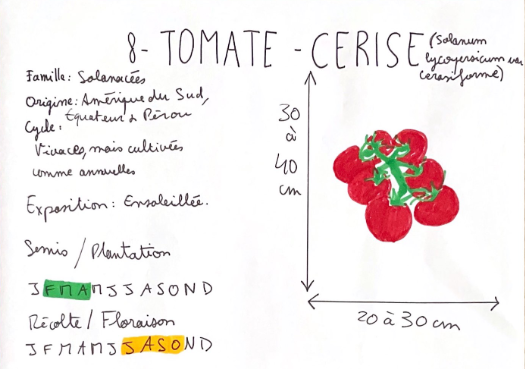 8- TOMATE - CERISE (Solanum
lycopersicum var
cerasiforme)
Famille: Solanacées
Origine: Amérique du Sud,
Équateur & Pérou
Cycle:
Vivaces, mais cultivées
comme annuelles
Exposition: Ensoleillée.
Semis / Plantation
J F M A M J J A S O N D
Récolte / Floraison
J F M A M J J A S O N D
30
à
40
cm
20 à 30 cm